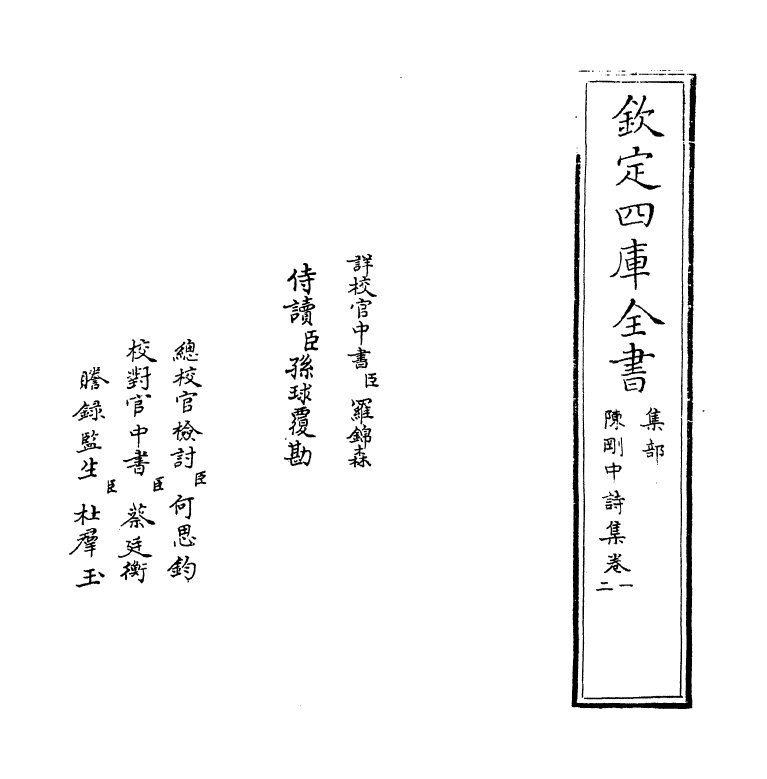 欽定四庫全書
集部
陳剛中詩集卷一二
詳校官中書臣羅錦森
侍讀臣孫球覆勘
總校官檢討臣何思鈞
校對官中書臣蔡廷衡
謄錄監生臣杜羣玉